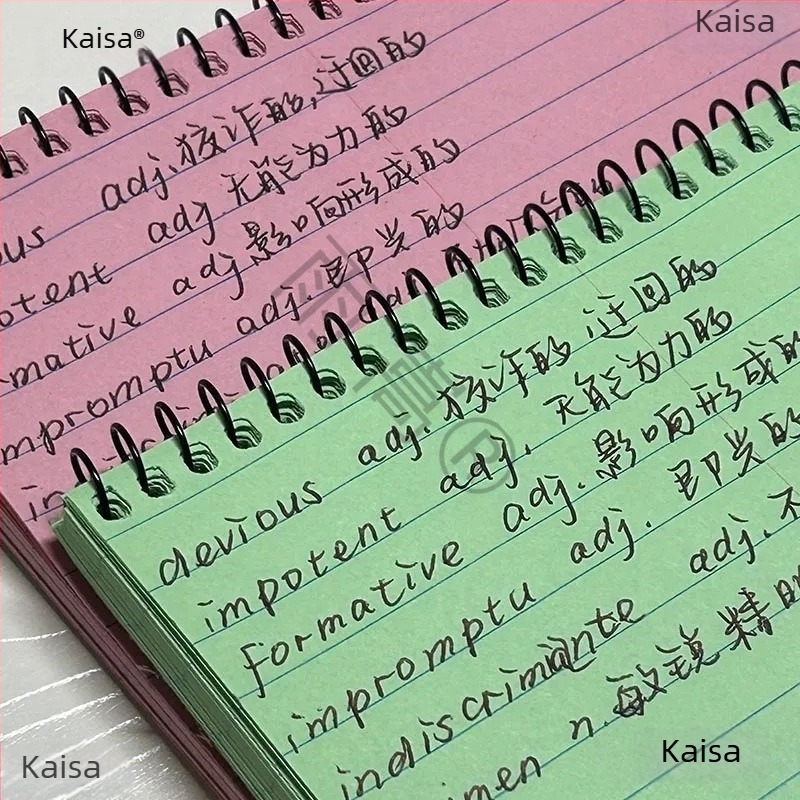 Kaisa®
Kaisa
adj. 狡诈的,迂回的
adj. 无能为力的
adj. 影响形成的
mpromptu adj. 即兴的
devious adj. 狡诈的 迂回的
impotent adj. 无能为力的
formative adj. 影响形成的
impromptu adj. 即兴的
indiscriminate adj. 不
n. 敏锐 精明
Kaisa
Kaisa